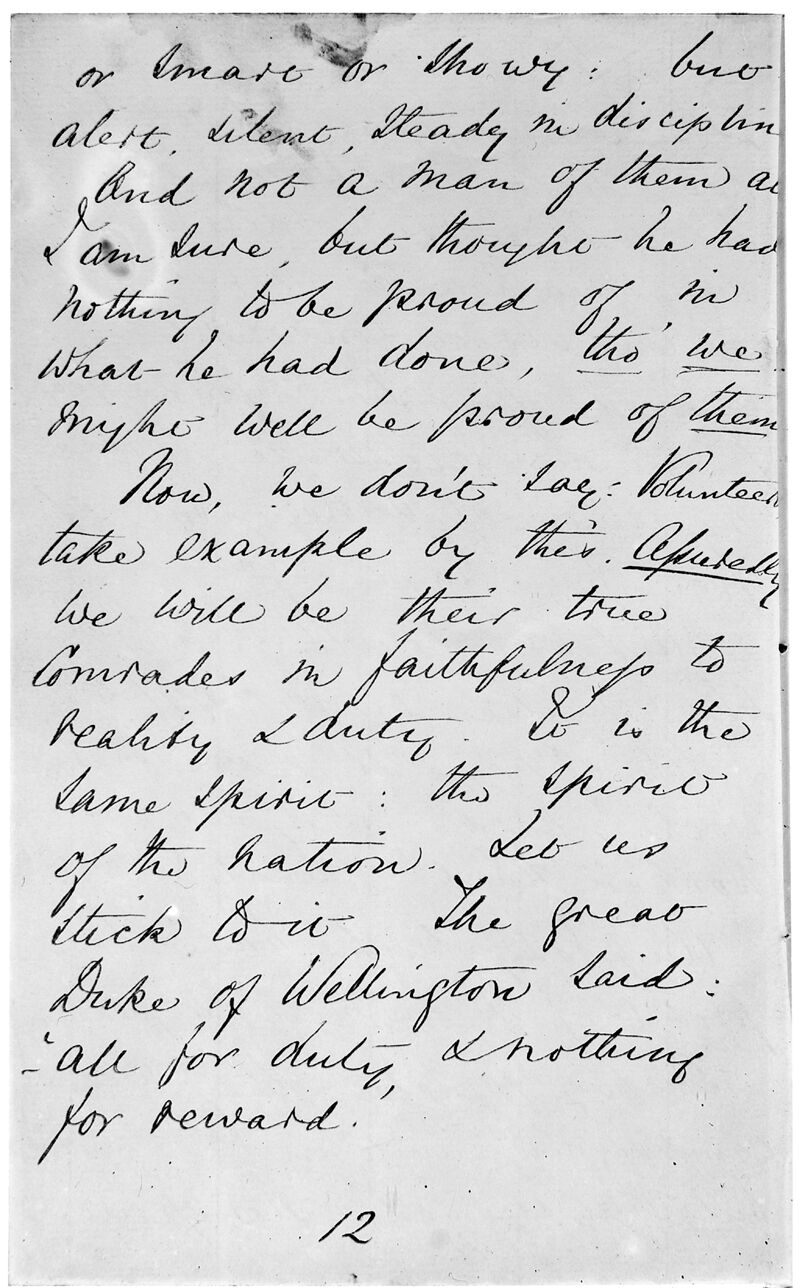 or smart or showy: but
alert, silent, steady in disciplin
And not a man of them al
I am sure, but thought he had
nothing to be proud of in
what he had done, tho' we
might well be proud of them
Now, we don't say: Volunteers,
take example by this. Assuredly
we will be their true
Comrades in faithfulness to
reality & duty. It is the
same spirit: the spirit
of the nation. Let us
stick to it The great
Duke of Wellington said:
"all for duty, & nothing
for reward."
12